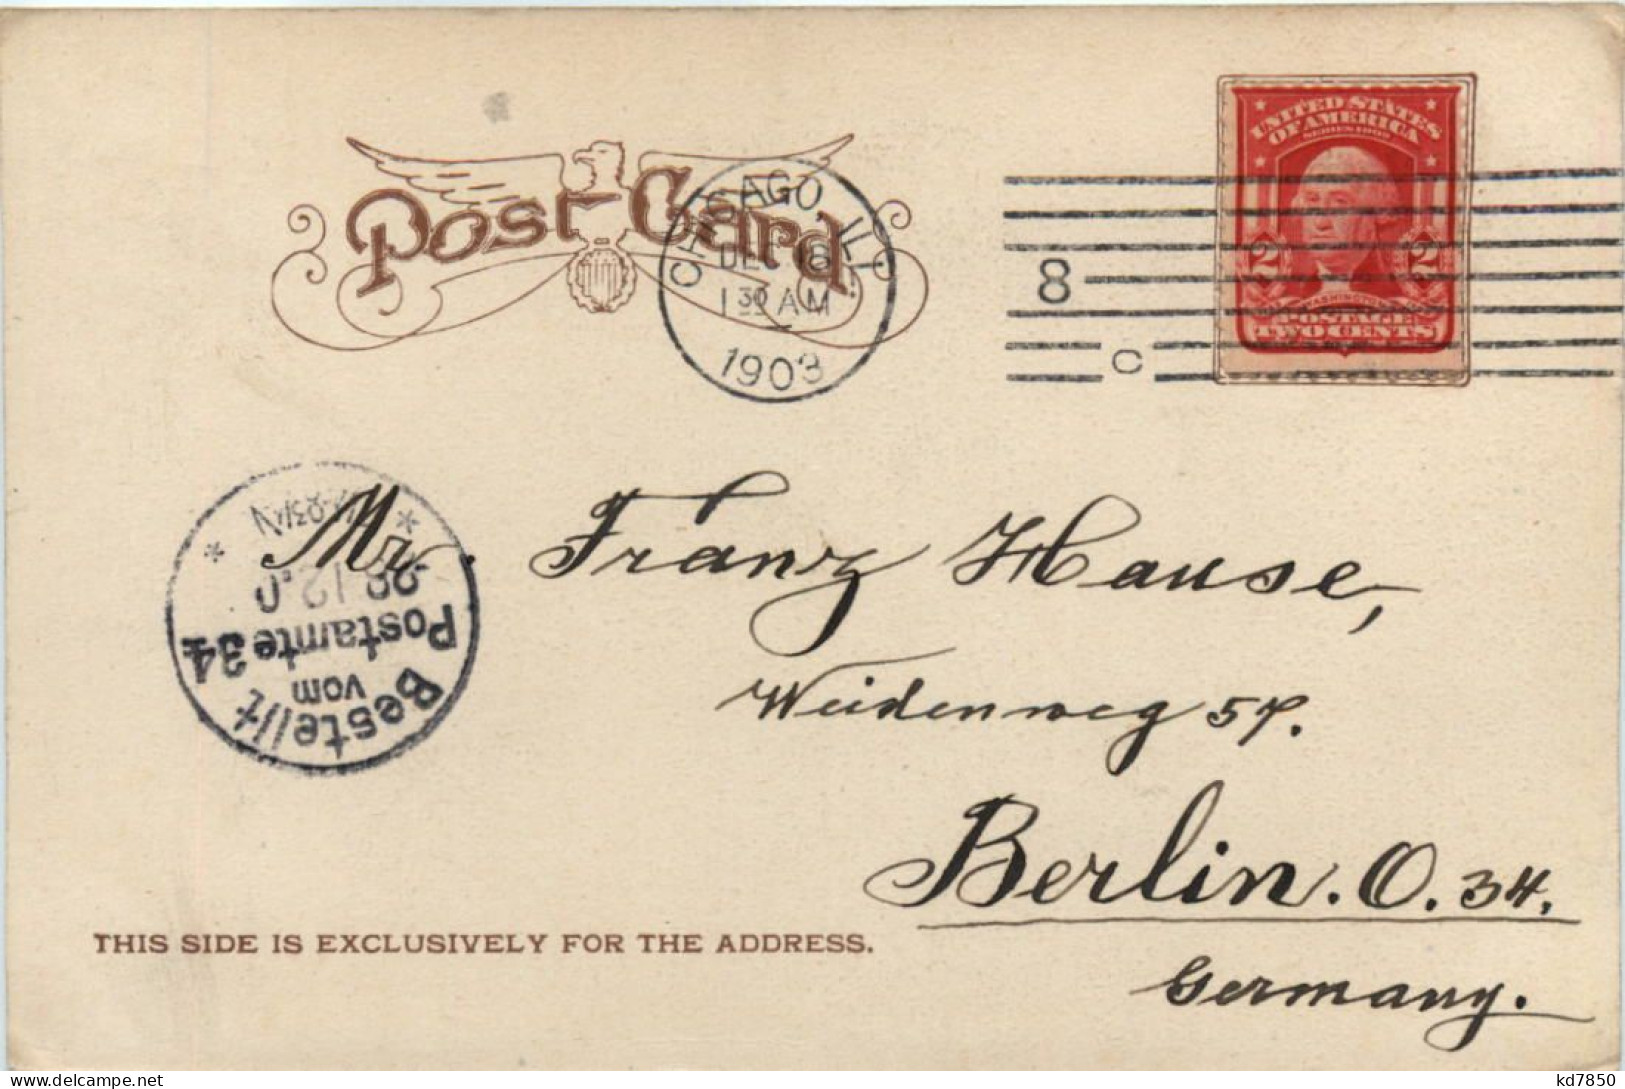 Post Card
CHICAGO, ILL.
DEC 18
1 30 AM
1903
8
C
UNITED STATES
OF AMERICA
SERIES 1902
2 2
WASHINGTON
POSTAGE
TWO CENTS
Bestellt
vom
Postamte 34
Mr. Franz Hause,
Weidenweg 57.
Berlin. O. 34.
Germany.
THIS SIDE IS EXCLUSIVELY FOR THE ADDRESS.
kd7850